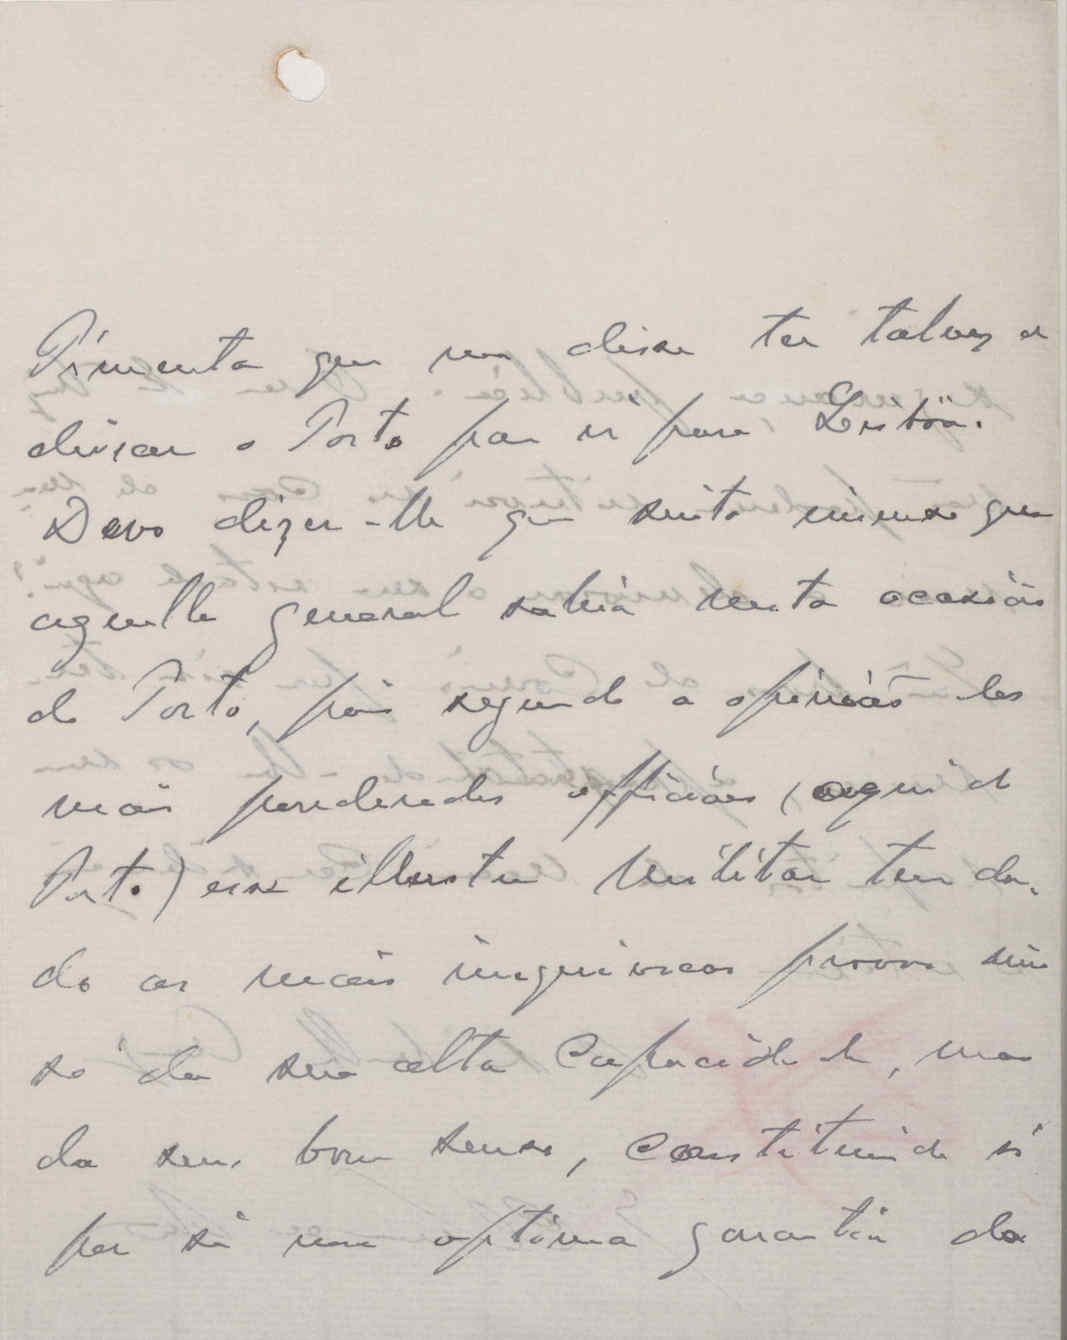 Pimenta que me disse ter talvez de
deixar o Porto para ir para Lisbôa.
Devo dizer-lhe que sinto immenso que
aquelle general sahia nesta occasião
do Porto, pois segundo a opinião dos
mais ponderados officiaes (aqui do
Porto) esse illustre Militar tem da-
do as mais inequivocas provas não
só da sua alta Capacidade, mas
do seu bom senso, constituindo só
por si uma optima garantia da